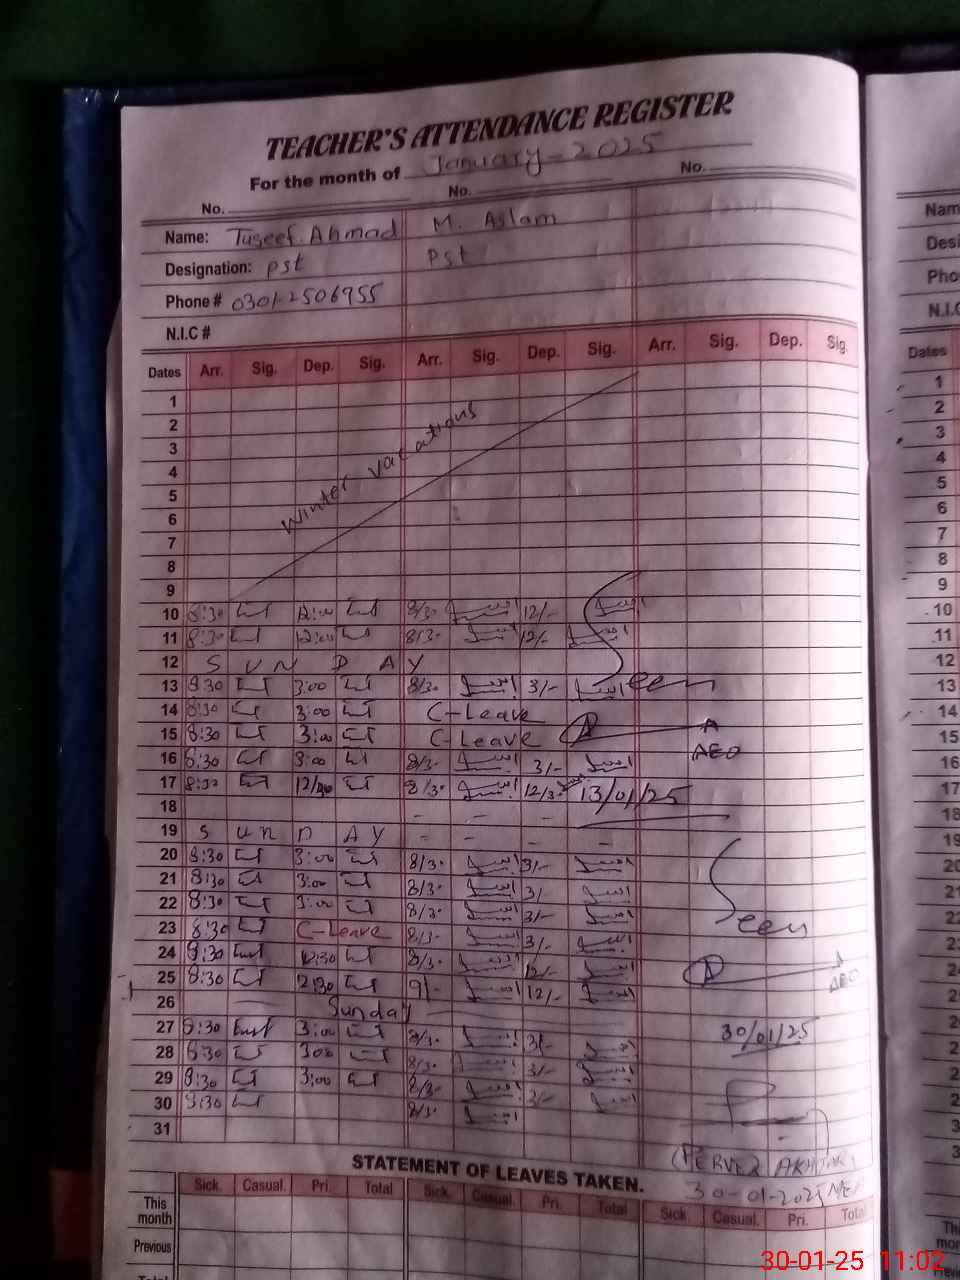 TEACHER'S ATTENDANCE REGISTER
For the month of January-2025
No. No. No.
Name: Tuseef Ahmad M. Aslam
Designation: Pst Pst
Phone # 0301-2506955
N.I.C #
Dates Arr. Sig. Dep. Sig. Arr. Sig. Dep. Sig. Arr. Sig. Dep. Sig.
1
2
3
4
5
6
7
8
9
Winter vacations
10 8:30 12:00 8/30 12/-
11 8:30 12:00 8/30 12/-
12 SUN DAY
13 8:30 3:00 8/30 3/- Seen
14 8:30 3:00 C-Leave
15 8:30 3:00 C-Leave A
AEO
16 8:30 3:00 8/30 3/-
17 8:30 12/30 8/30 12/30 13/01/25
18 - - - -
19 SUN DAY - - - -
20 8:30 3:00 8/30 3/-
21 8:30 3:00 8/30 3/
22 8:30 3:00 8/30 3/- Seen
23 8:30 C-Leave 8/30 3/-
24 8:30 12:30 8/30 12/-
25 8:30 2:30 9/- 12/- AEO
26 Sunday
27 8:30 3:00 8/30 3/- 30/01/25
28 8:30 3:00 8/30 3/-
29 8:30 3:00 8/30 3/-
30 8:30 8/30
31
(PERVEZ AKHTAR)
30-01-2025
STATEMENT OF LEAVES TAKEN.
Sick. Casual. Pri. Total Sick. Casual. Pri. Total Sick. Casual. Pri. Total
This month
Previous
Total
Dates
1
2
3
4
5
6
7
8
9
10
11
12
13
14
15
16
17
18
30-01-25 11:02